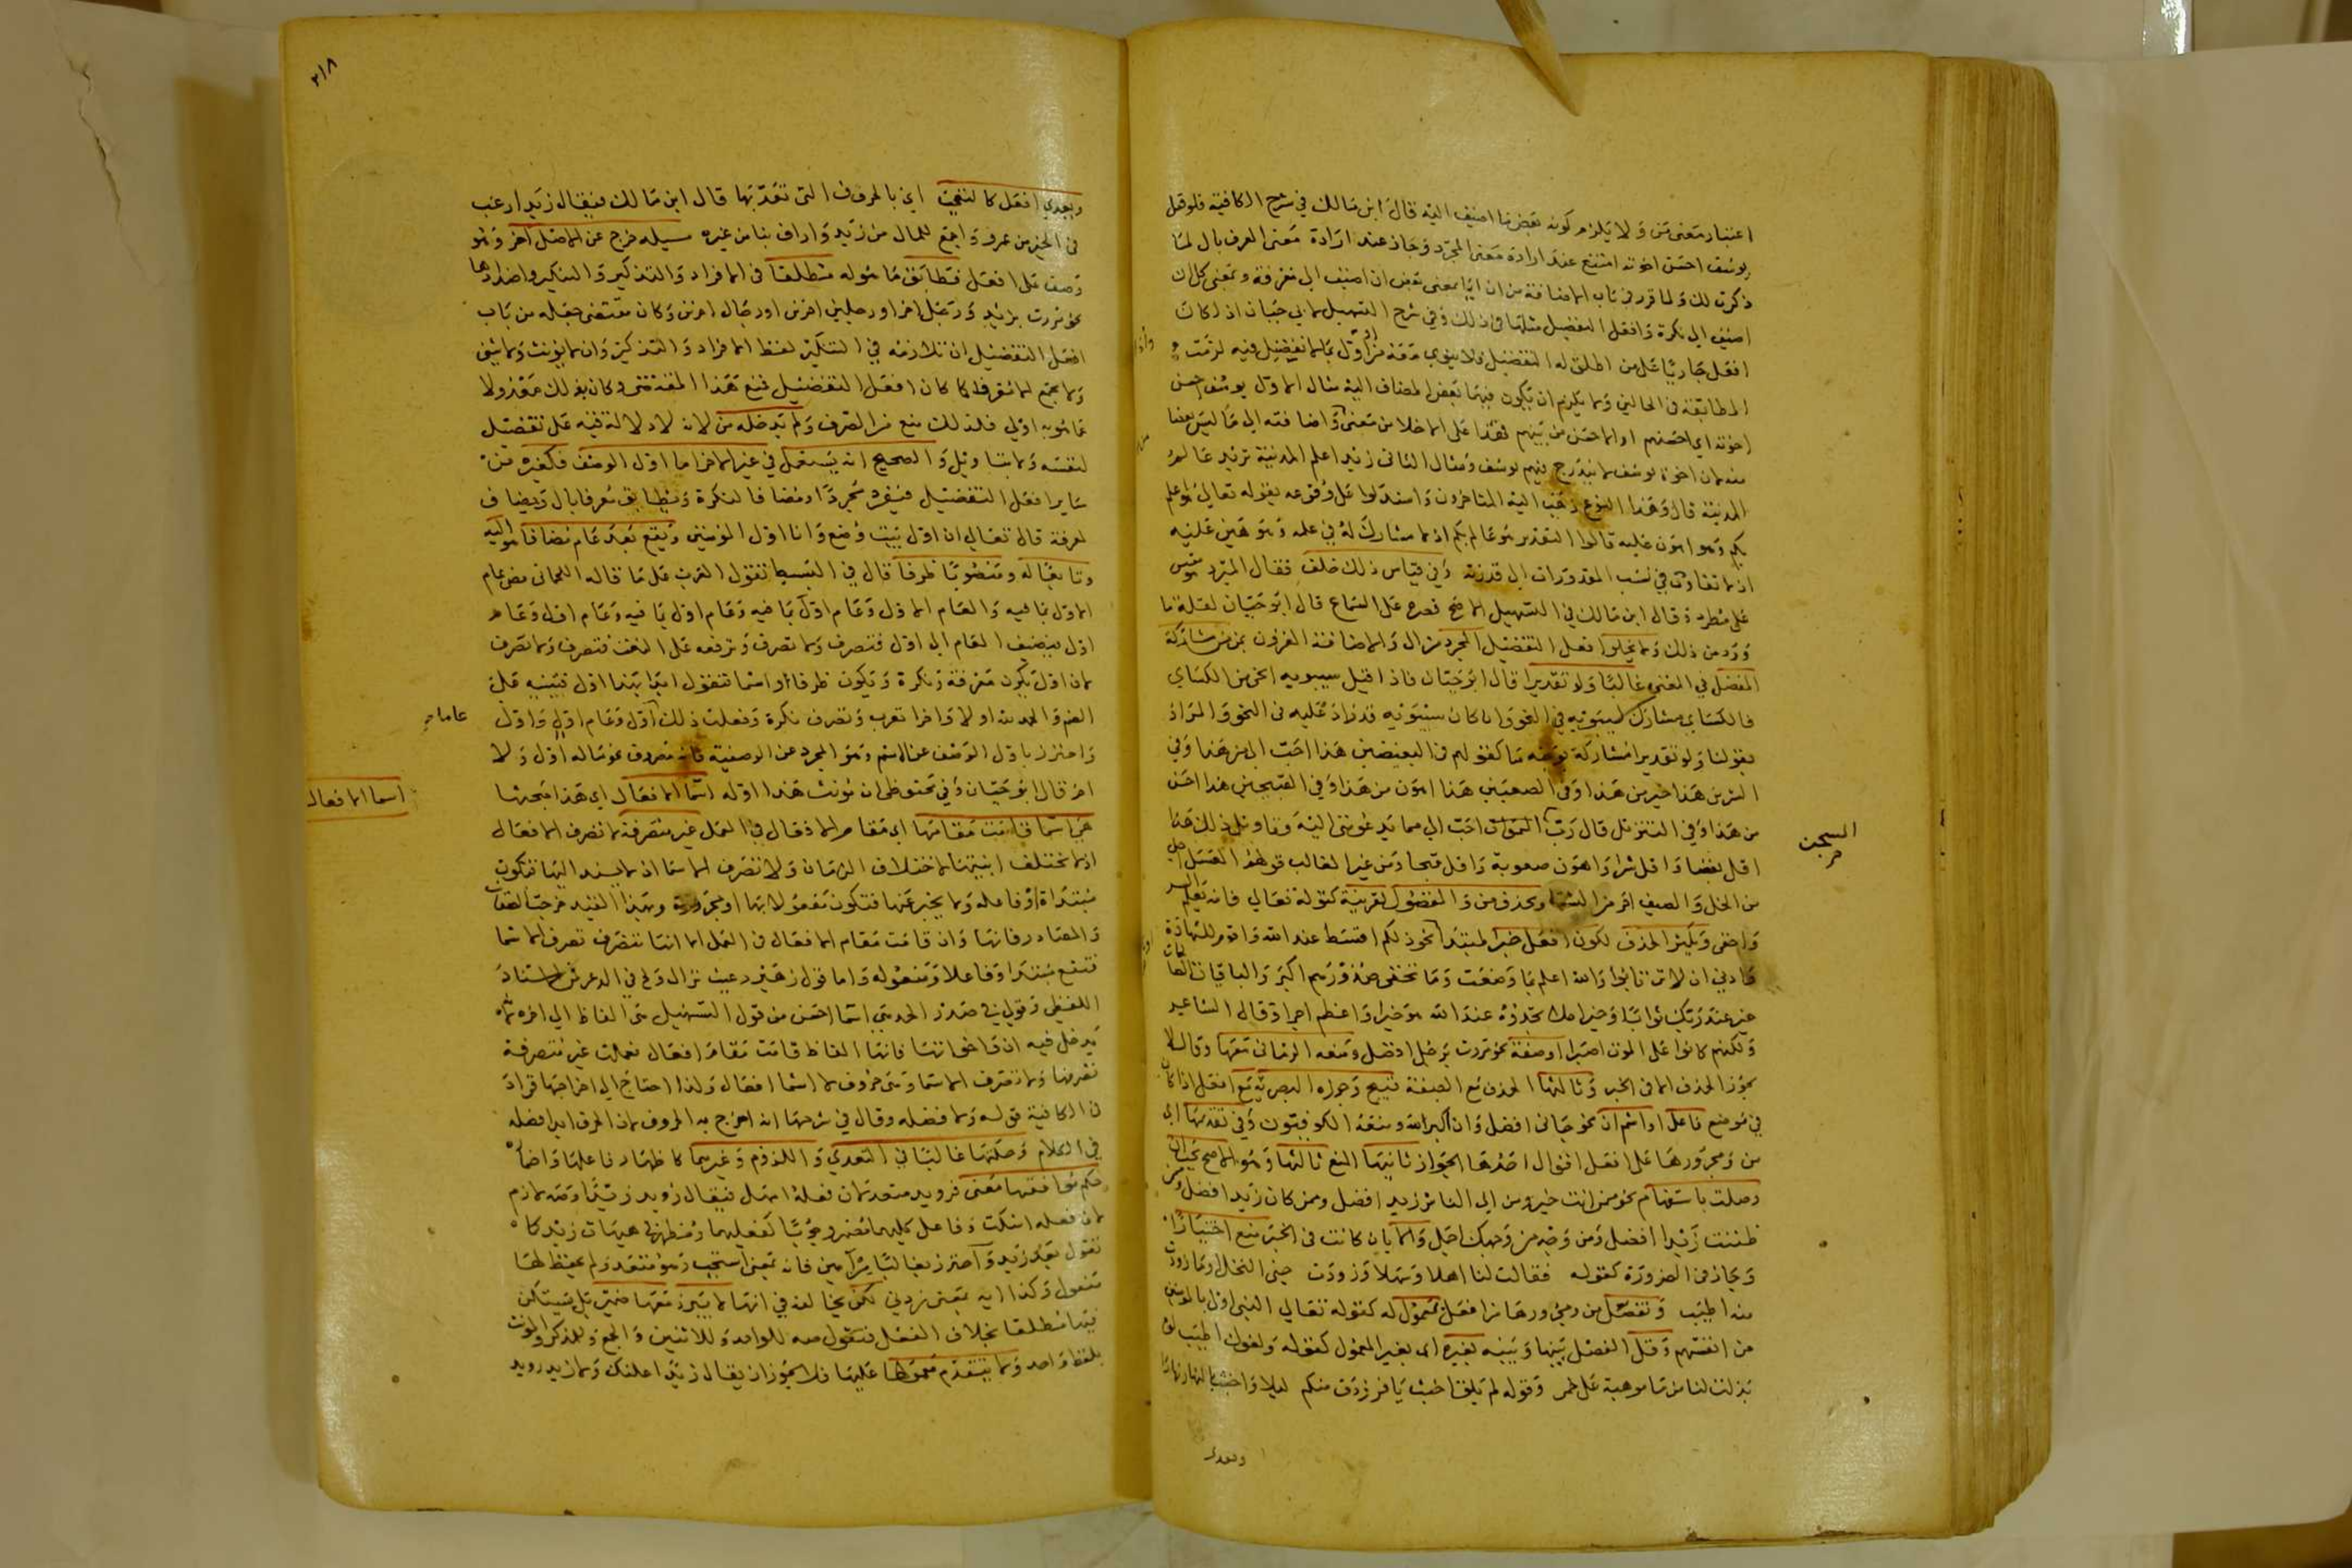 اعتبار معنى من ولا يلزم كونه بعض ما اضيف اليه قال ابن مالك في شرح الكافية فلو قيل
يوسف احسن اخوته امتنع عند ارادة معنى المجرد وجاز عند ارادة معنى المعرف بال لما
ذكرت لك ولما قرر في باب الاضافة من ان ايا بمعنى بعض ان اضيف الى معرفة وبمعنى كل ان
اضيف الى نكرة وافعل التفضيل مثلها في ذلك وفي شرح التسهيل لابي حيان اذا كان
المطابقة في الحالين ولا يلزم ان يكون فيهما بعض المضاف اليه مثال الاول يوسف احسن
اخوته اي احسنهم او الاحسن من بينهم فقد على الاخلا من معنى واضافته الى ما ليس بعضا
منه لان اخوة يوسف لا يندرج فيهم يوسف ومثال الثاني زيد اعلم المدينة تريد عالم
المدينة قال وهذا النوع ذهب اليه المتاخرون واستدلوا على وقوعه بقوله تعالى هو اعلم
بكم وهو اهون عليه قالوا التقدير هو عالم بكم اذ لا مشارك له في علمه وهو هين عليه
اذ لا تفاوت في نسب المقدورات الى قدرته وفي قياس ذلك خلف فقال المبرد مقيس
على مطرد وقال ابن مالك في التسهيل الاصح قصره على السماع قال ابو حيان لقلة ما
ورد من ذلك ولا يخلو افعل التفضيل المجرد من ال والاضافة المقرون بمن من مشاركة
المفضل في المعنى غالبا ولو تقديرا قال ابو حيان فاذا قيل سيبويه انحى من الكساي
فالكساي مشارك لسيبويه في النحو وان كان سيبويه قد زاد عليه في النحو والمراد
بقولنا ولو تقديرا مشاركة بوجه ما كقولهم في البغيضين هذا احب الي من هذا وفي
الشرين هذا خير من هذا وفي الصعبين هذا اهون من هذا وفي القبيحين هذا احسن
من هذا وفي التنزيل قال رب السجن احب الي مما يدعونني اليه وتاويل ذلك هذا
السجن
اقل بغضا واقل شرا واهون صعوبة واقل قبحا ومن غير الغالب قولهم العسل احلى
من الخل والصيف احر من الشتا وتحذف من والمفضول لقرينة كقوله تعالى فانه يعلم السر
واخفى ويكثر الحذف لكون افعل خبرا لمبتدا نحو ذلكم اقسط عند الله واقوم للشهادة
وادنى ان لا ترتابوا والله اعلم بما وضعت وما تخفي صدورهم اكبر والباقيات الصالحات
خير عند ربك ثوابا وخير املا تجدوه عند الله هو خيرا واعظم اجرا وقال الشاعر
ولكنهم كانوا على الموت اصبرا او صفة نحو مررت برجل افضل ومنعه الرماني معها وقال لا
يجوز الحذف الا في الخبر وثالثها الحذف مع الصفة قبيح وجوزه البصرية مع افعل اذا كان
في موضع فاعل او اسم ان نحو جاني افضل وان اكبر الله ومنعه الكوفيون وفي تقديمها اي
من ومجرورها على افعل اقوال احدها الجواز ثانيها المنع ثالثها وهو الاصح يجب ان
وصلت باستفهام نحو ممن انت خير ومن اي الناس زيد افضل وممن كان زيد افضل وممن
ظننت زيدا افضل ومن وجه من وجهك اجمل والا بان كانت في الخبر منع اختيارا
وجاز في الضرورة كقوله فقالت لنا اهلا وسهلا وزودت جنى النحل او ما زودت
منه اطيب وتفصل من ومجرورها من افعل بمعموله كقوله تعالى النبي اولى بالمومنين
من انفسهم وقل الفصل بينها وبينه بغيره اي بغير المعمول كقوله ولفوك اطيب لو
بذلت لنا من ما موهبة على خمر وقوله لم يلق اخبث يا فرزدق منكم ليلا واخبث بالنهار نهارا
وتعدى
٢١٨
وتعدي افعل كالتعجب اي بالحروف التي تعدى بها قال ابن مالك فيقال زيد ارغب
في الخير من عمرو واجمع للمال من زيد واراف بنا من غيره مسيله خرج عن الاصل اخر وهو
وصف على افعل فطابق ما هو له مطلقا في الافراد والتذكير والتنكير واضدادها
نحو مررت بزيد ورجل اخر او رجلين اخرين او رجال اخرين وكان مقتضى جعله من باب
افعل التفضيل ان تلازمه في التنكير لفظ الافراد والتذكير وان لا يونث ولا يثنى
ولا يجمع الا معرفا كما كان افعل التفضيل فمنع هذا المقتضى وكان بذلك معدولا
عما هو به اولى فلذلك منع من الصرف ولم تدخله من لانه لا دلالة فيه على تفضيل
لنفسه ولا بتاويل والصحيح انه يستعمل في غير الاخر اما اول الوصف فكغيره من
ساير افعل التفضيل فيفرد مجردا او مضافا لنكرة ويطابق معرفا بال ويضاف
لمعرفة قال تعالى ان اول بيت وضع وانا اول المومنين ويقع بعد عام مضافا هو اليه
وتابعا له ومنصوبا ظرفا قال في البسيط تقول العرب على ما قاله اللحياني مضى عام
الاول بما فيه والعام الاول وعام اول بما فيه وعام اول بما فيه وعام اول وعام
اول فيضيف العام الى اول فتصرف ولا تصرف وترفعه على النعت فتصرف ولا تصرف
لان اول يكون معرفة ونكرة ويكون ظرفا واسما فتقول ابدا بهذا اول فتبنيه على
الضم والحمد لله اولا واخرا تعرب وتصرف نكرة وفعلت ذلك اول وعام اول واول
عاما
واحترز باول الوصف عن الاسم وهو المجرد عن الوصفية فانه مصروف نحو ما له اول ولا
اخر قال ابو حيان وفي محفوظي ان مونث هذا اوله اسما الافعال اي هذا مبحثها
اسما الافعال
هي اسما قامت مقامها اي مقام الافعال في العمل غير متصرفة لا تصرف الافعال
اذ لا تختلف ابنيتها لاختلاف الزمان ولا تصرف الاسما اذ لا يسند اليها فتكون
مبتداة او فاعلة ولا يخبر عنها فتكون مفعولا بها او مجرورة وبهذا القيد خرجت الصفات
والمصادر فانها وان قامت مقام الافعال في العمل الا انها تتصرف تصرف الاسما
فتقع مبتدا وفاعلا ومفعولا واما قول زهير دعيت نزال ولج في الذعر فمن الاسناد
اللفظي وقولي في صدر الحد هي اسما احسن من قول التسهيل هي الفاظ الى اخره لانه
يدخل فيه ان واخواتها فانها الفاظ قامت مقام افعال فعملت غير متصرفة
تصرفها ولا تصرف الاسما وهي حروف لا اسما افعال ولذا احتاج الى اخراجها فزاد
في الكافية قوله ولا فضله وقال في شرحها انه اخرج به الحروف لان الحرف ابدا فضله
في الكلام وحكمها غالبا في التعدي واللزوم وغيرهما كاظهار فاعلها واضماره
حكم موافقها معنى فرويد متعد لان فعله امهل فيقال رويد زيدا وصه لازم
لان فعله اسكت وفاعل كليهما مضمر وجوبا كفعليهما ومظهر في هيهات زيد كما
تقول بعد زيد واحترز بغالبا من آمين فانه بمعنى استجب وهو متعد ولم يحفظ لها
مفعول وكذا ايه بمعنى زدني لكن يخالفه في انها لا يبرز معها ضمير بل يستكن
فيها مطلقا بخلاف الفعل فتقول صه للواحد وللاثنين والجمع وللمذكر والمونث
بلفظ واحد ولا يتقدم معمولها عليها فلا يجوز ان يقال زيدا عليك ولا زيدا رويد